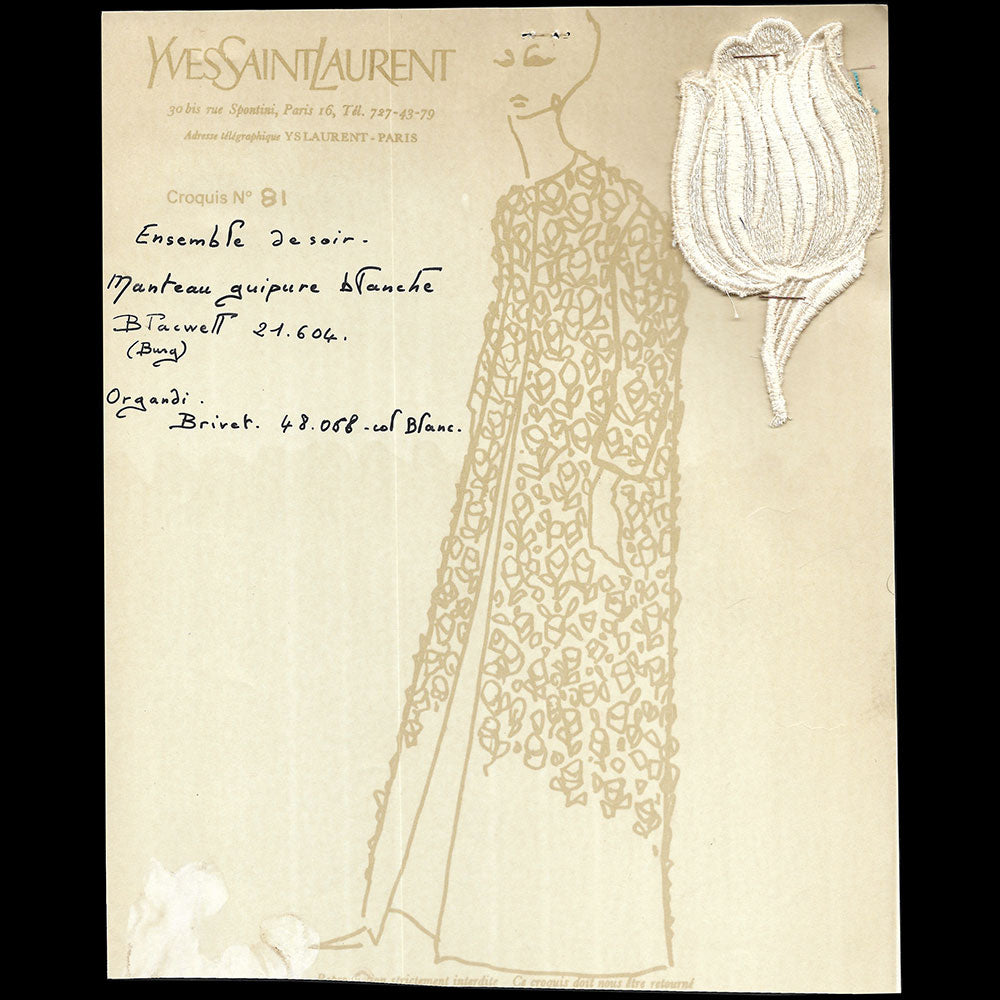 YVES SAINT LAURENT
30 bis rue Spontini, Paris 16, Tél. 727-43-79
Adresse télégraphique YSLAURENT - PARIS
Croquis N° 81
Ensemble de soir.
Manteau guipure blanche
Blacwell 21.604.
(Burg)
Organdi.
Brivet. 48.068 - col Blanc.
strictement interdite Ce croquis doit nous être retourné